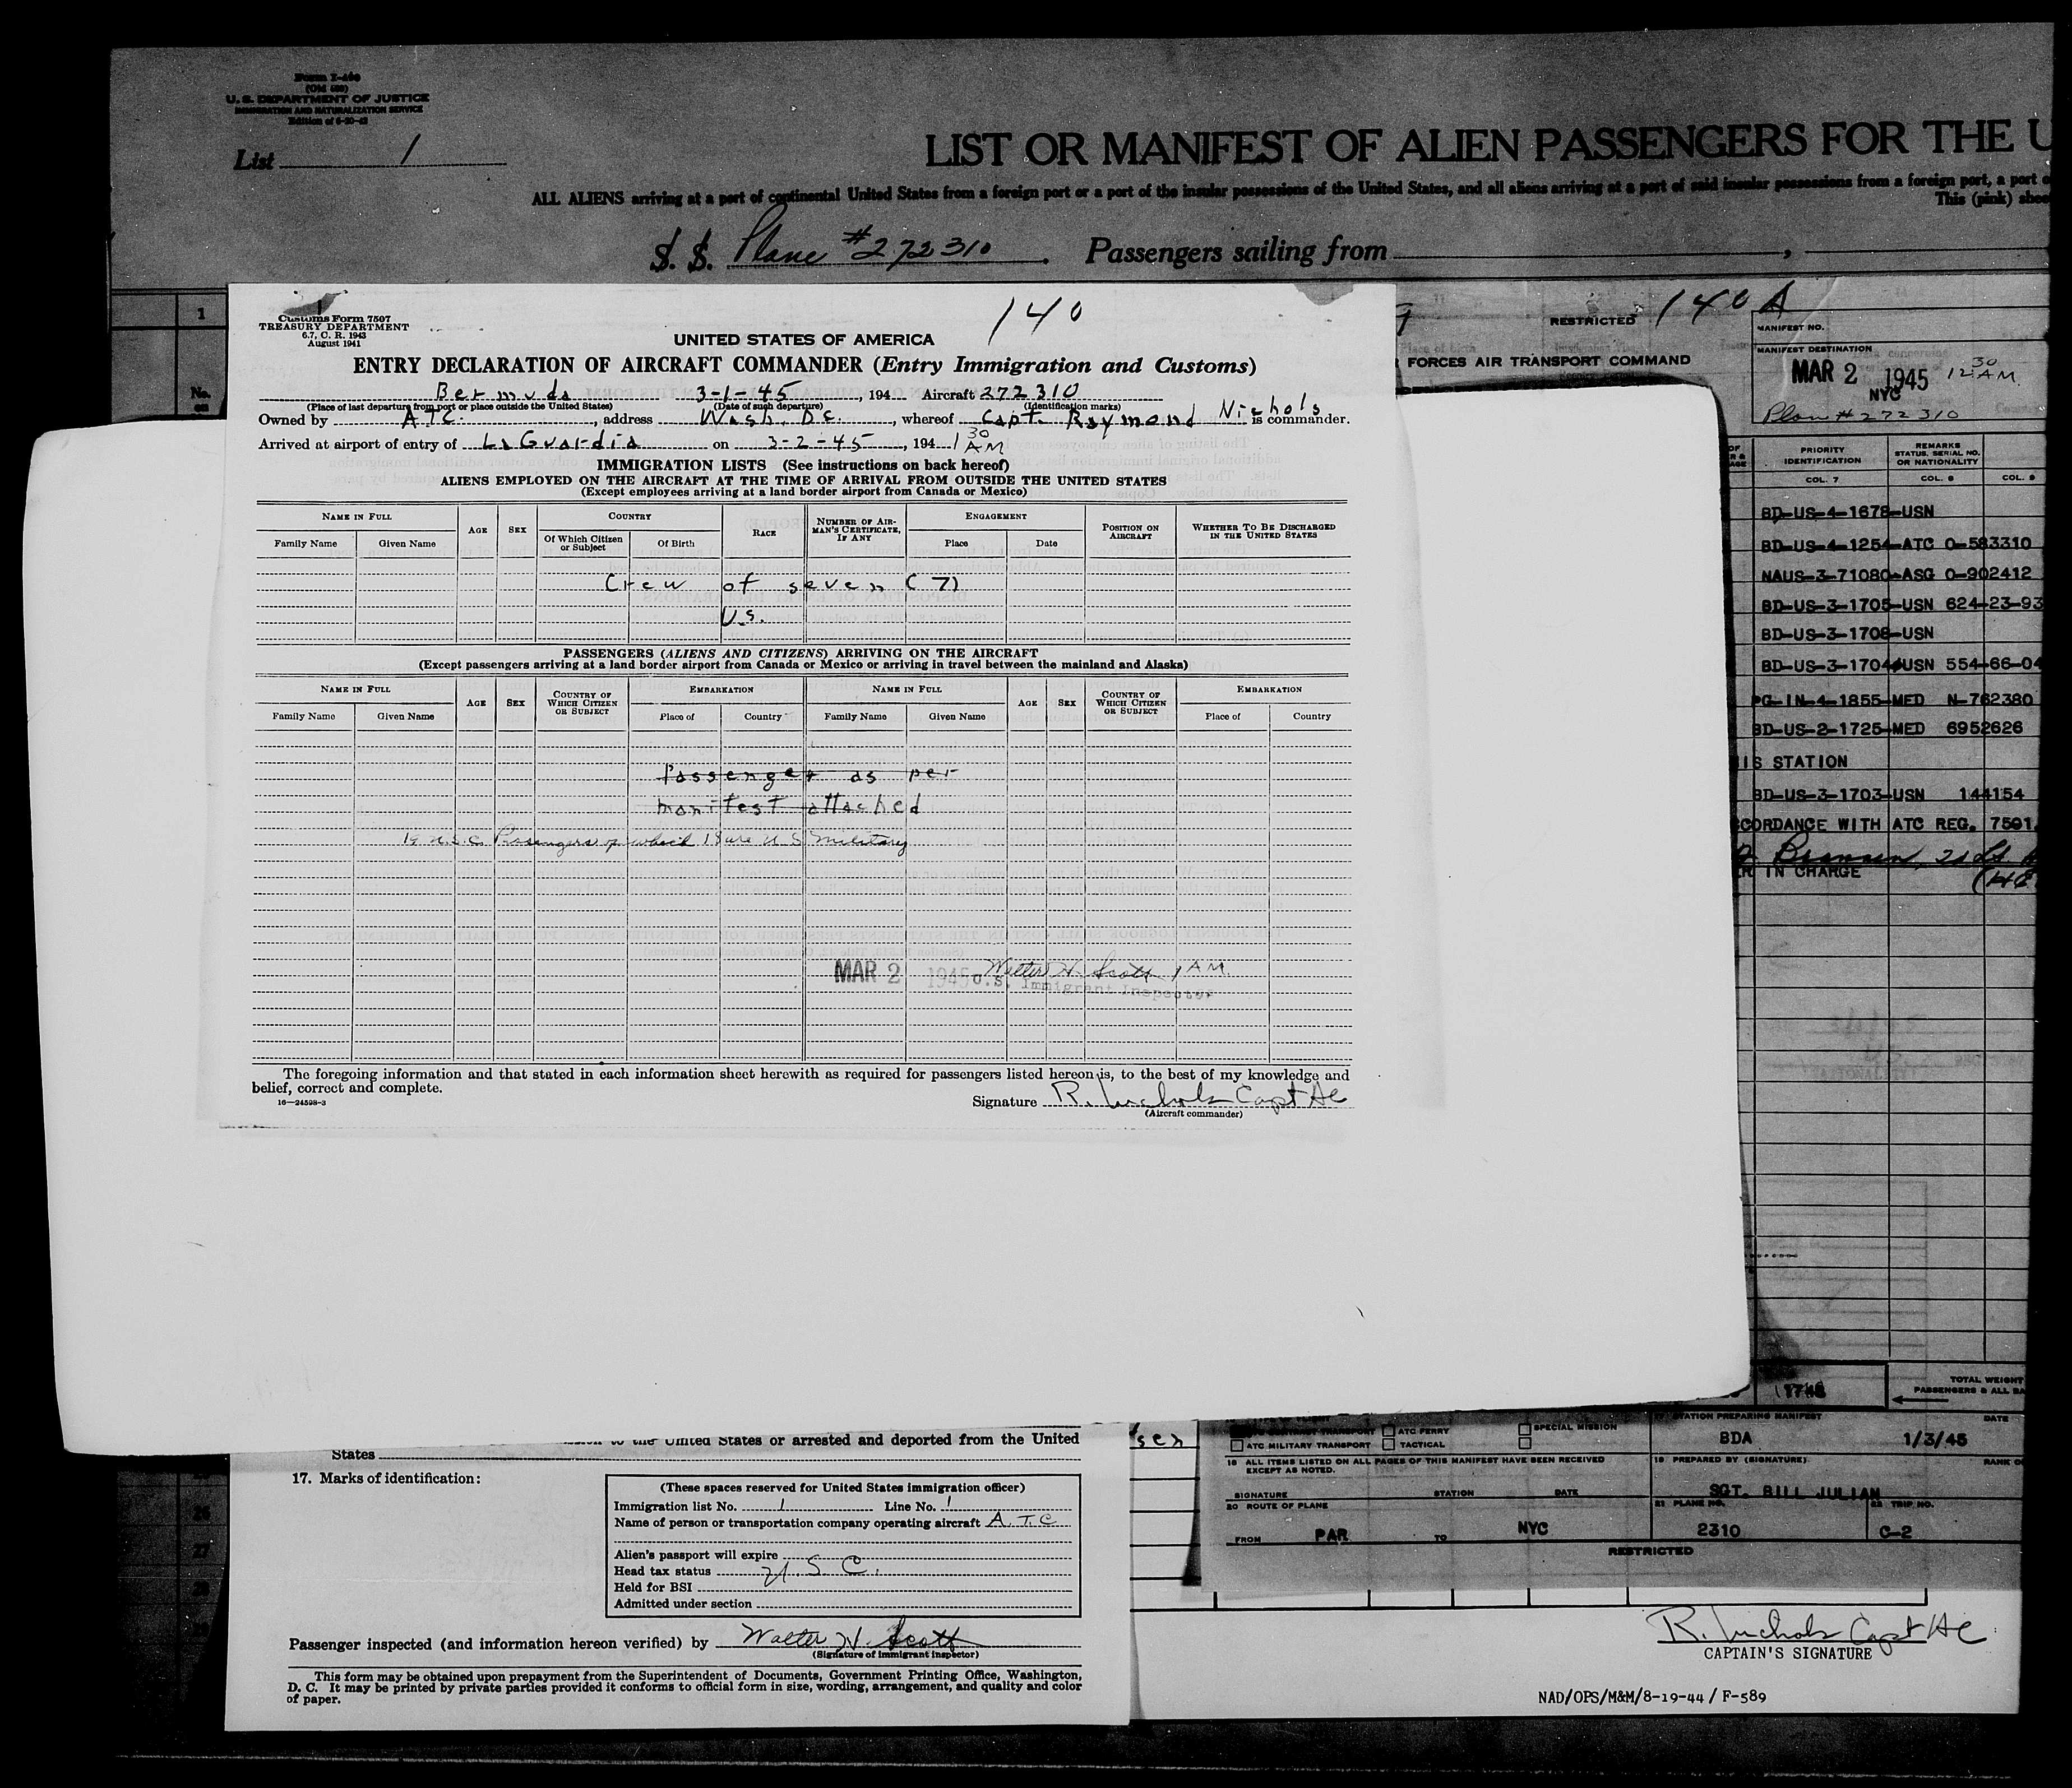 Form I-466
(Old 500)
U. S. DEPARTMENT OF JUSTICE
IMMIGRATION AND NATURALIZATION SERVICE
List 1
LIST OR MANIFEST OF ALIEN PASSENGERS FOR THE U
ALL ALIENS arriving at a port of continental United States from a foreign port or a port of the insular possessions of the United States, and all aliens arriving at a port of said insular possessions from a foreign port, a port o
This (pink) shee
S. S. Plane #272310. Passengers sailing from
1
No.
on
Customs Form 7507
TREASURY DEPARTMENT
6.7, C. R. 1943
August 1941
140
UNITED STATES OF AMERICA
ENTRY DECLARATION OF AIRCRAFT COMMANDER (Entry Immigration and Customs)
Bermuda 3-1-45, 194 Aircraft 272310
(Place of last departure from port or place outside the United States) (Date of such departure) (Identification marks)
Owned by ATC, address Wash. D.C., whereof Capt. Raymond Nichols is commander.
Arrived at airport of entry of LaGuardia on 3-2-45, 194 1 30 AM
IMMIGRATION LISTS (See instructions on back hereof)
ALIENS EMPLOYED ON THE AIRCRAFT AT THE TIME OF ARRIVAL FROM OUTSIDE THE UNITED STATES
(Except employees arriving at a land border airport from Canada or Mexico)
NAME IN FULL AGE SEX COUNTRY RACE NUMBER OF AIRMAN'S CERTIFICATE, IF ANY ENGAGEMENT POSITION ON AIRCRAFT WHETHER TO BE DISCHARGED IN THE UNITED STATES
Family Name Given Name Of Which Citizen or Subject Of Birth Place Date
Crew of seven (7)
U.S.
PASSENGERS (ALIENS AND CITIZENS) ARRIVING ON THE AIRCRAFT
(Except passengers arriving at a land border airport from Canada or Mexico or arriving in travel between the mainland and Alaska)
NAME IN FULL AGE SEX COUNTRY OF WHICH CITIZEN OR SUBJECT EMBARKATION NAME IN FULL AGE SEX COUNTRY OF WHICH CITIZEN OR SUBJECT EMBARKATION
Family Name Given Name Place of Country Family Name Given Name Place of Country
Passenger as per
manifest attached
19 U.S.C. Passengers of which 18 are U S Military
MAR 2 1945 Walter H. Scott 1 AM
U.S. Immigrant Inspector
The foregoing information and that stated in each information sheet herewith as required for passengers listed hereon is, to the best of my knowledge and
belief, correct and complete.
16—24598-3
Signature R. Nichols Capt AC
(Aircraft commander)
RESTRICTED 140 A
FORCES AIR TRANSPORT COMMAND
MANIFEST NO.
MANIFEST DESTINATION
MAR 2 1945 12 30 AM
NYC
Plan # 272310
PRIORITY IDENTIFICATION
REMARKS STATUS, SERIAL NO. OR NATIONALITY
COL. 7 COL. 8 COL. 9
BD-US-4-1678-USN
BD-US-4-1254-ATC O-583310
NAUS-3-71080-ASG O-902412
BD-US-3-1705-USN 624-23-93
BD-US-3-1708-USN
BD-US-3-1704-USN 554-66-04
PG-IN-4-1855-MED N-762380
BD-US-2-1725-MED 6952626
IS STATION
BD-US-3-1703-USN 144154
CCORDANCE WITH ATC REG. 7501
ER IN CHARGE
TOTAL WEIGHT
PASSENGERS & ALL BA
to the United States or arrested and deported from the United
States
17. Marks of identification:
(These spaces reserved for United States immigration officer)
Immigration list No. 1 Line No. 1
Name of person or transportation company operating aircraft A.T.C.
Alien's passport will expire
Head tax status U.S.C.
Held for BSI
Admitted under section
Passenger inspected (and information hereon verified) by Walter H. Scott
(Signature of immigrant inspector)
This form may be obtained upon prepayment from the Superintendent of Documents, Government Printing Office, Washington,
D. C. It may be printed by private parties provided it conforms to official form in size, wording, arrangement, and quality and color
of paper.
ATC FERRY
SPECIAL MISSION
ATC MILITARY TRANSPORT
TACTICAL
17 STATION PREPARING MANIFEST DATE
BDA 1/3/45
18 ALL ITEMS LISTED ON ALL PAGES OF THIS MANIFEST HAVE BEEN RECEIVED
EXCEPT AS NOTED.
19 PREPARED BY (SIGNATURE)
SIGNATURE STATION DATE
SGT. BILL JULIAN
20 ROUTE OF PLANE
21 PLANE NO. 22 TRIP NO.
FROM PAR TO NYC 2310 C-2
RESTRICTED
R. Nichols Capt AC
CAPTAIN'S SIGNATURE
NAD/OPS/M&M/8-19-44 / F-589
26
27